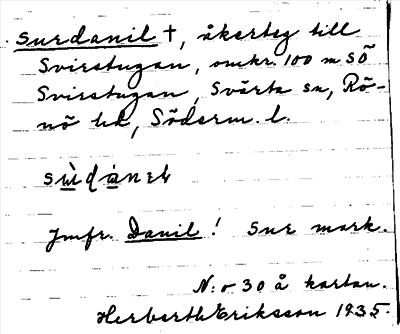 Surdanil †, åkerteg till
Svirstugan, omkr. 100 m SÖ
Svirstugan, Svärta sn, Rö-
nö hd, Söderm. l.
sùdánɛl
Jmfr. Danil! Sur mark.
N:o 30 å kartan.
Herbert Eriksson 1935.